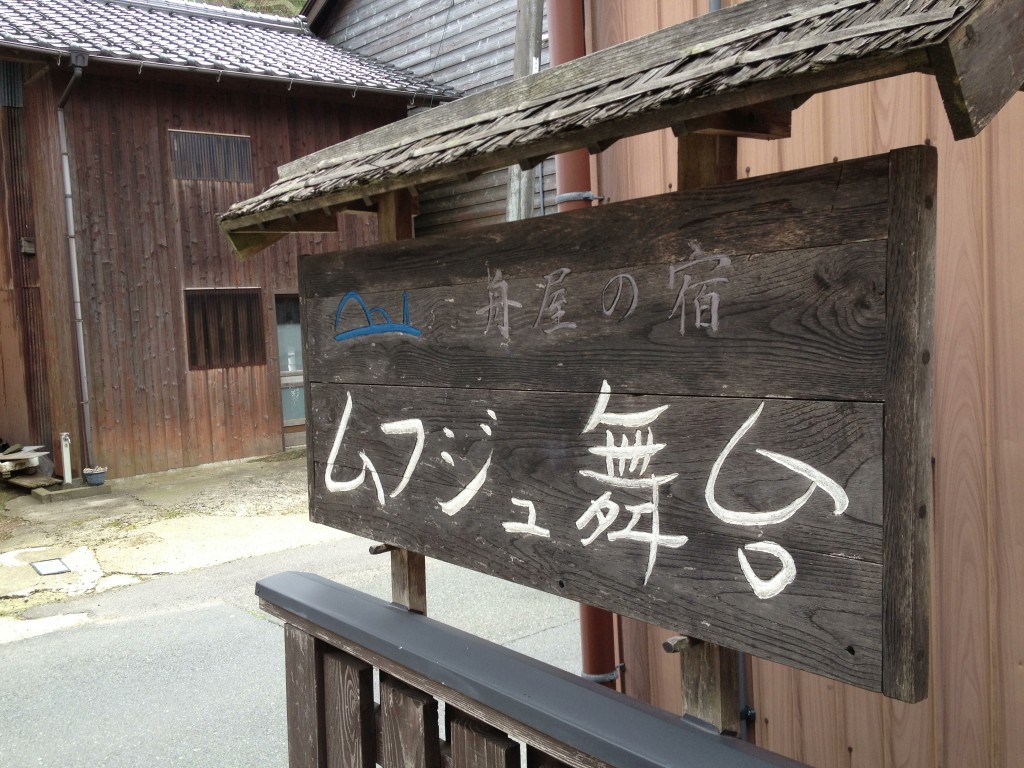 舟屋の宿
ムフジュ舞台